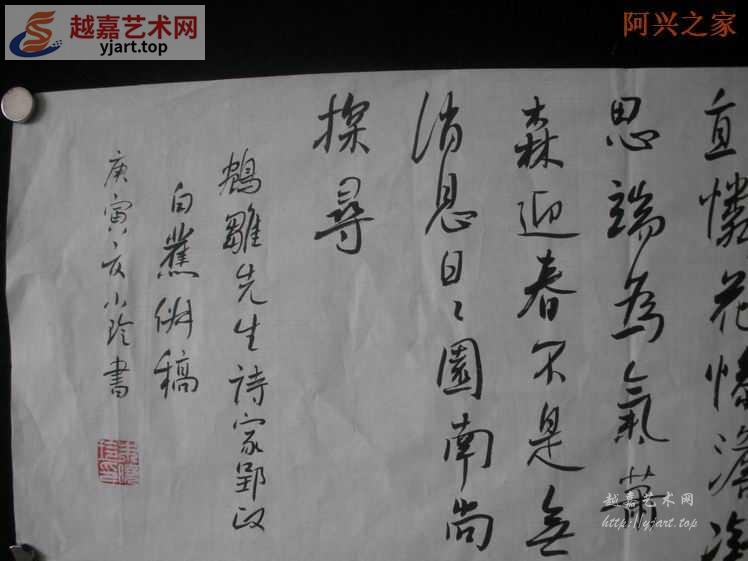 越嘉艺术网
yjart.top
阿兴之家
直憐花慘澹
思端為氣蕭
森迎春不是無
消息日〻園南尚
探尋
鵷雛先生詩家郢政
白蕉倂稿
庚寅亥小玲書
越嘉艺术网
http://yjart.top